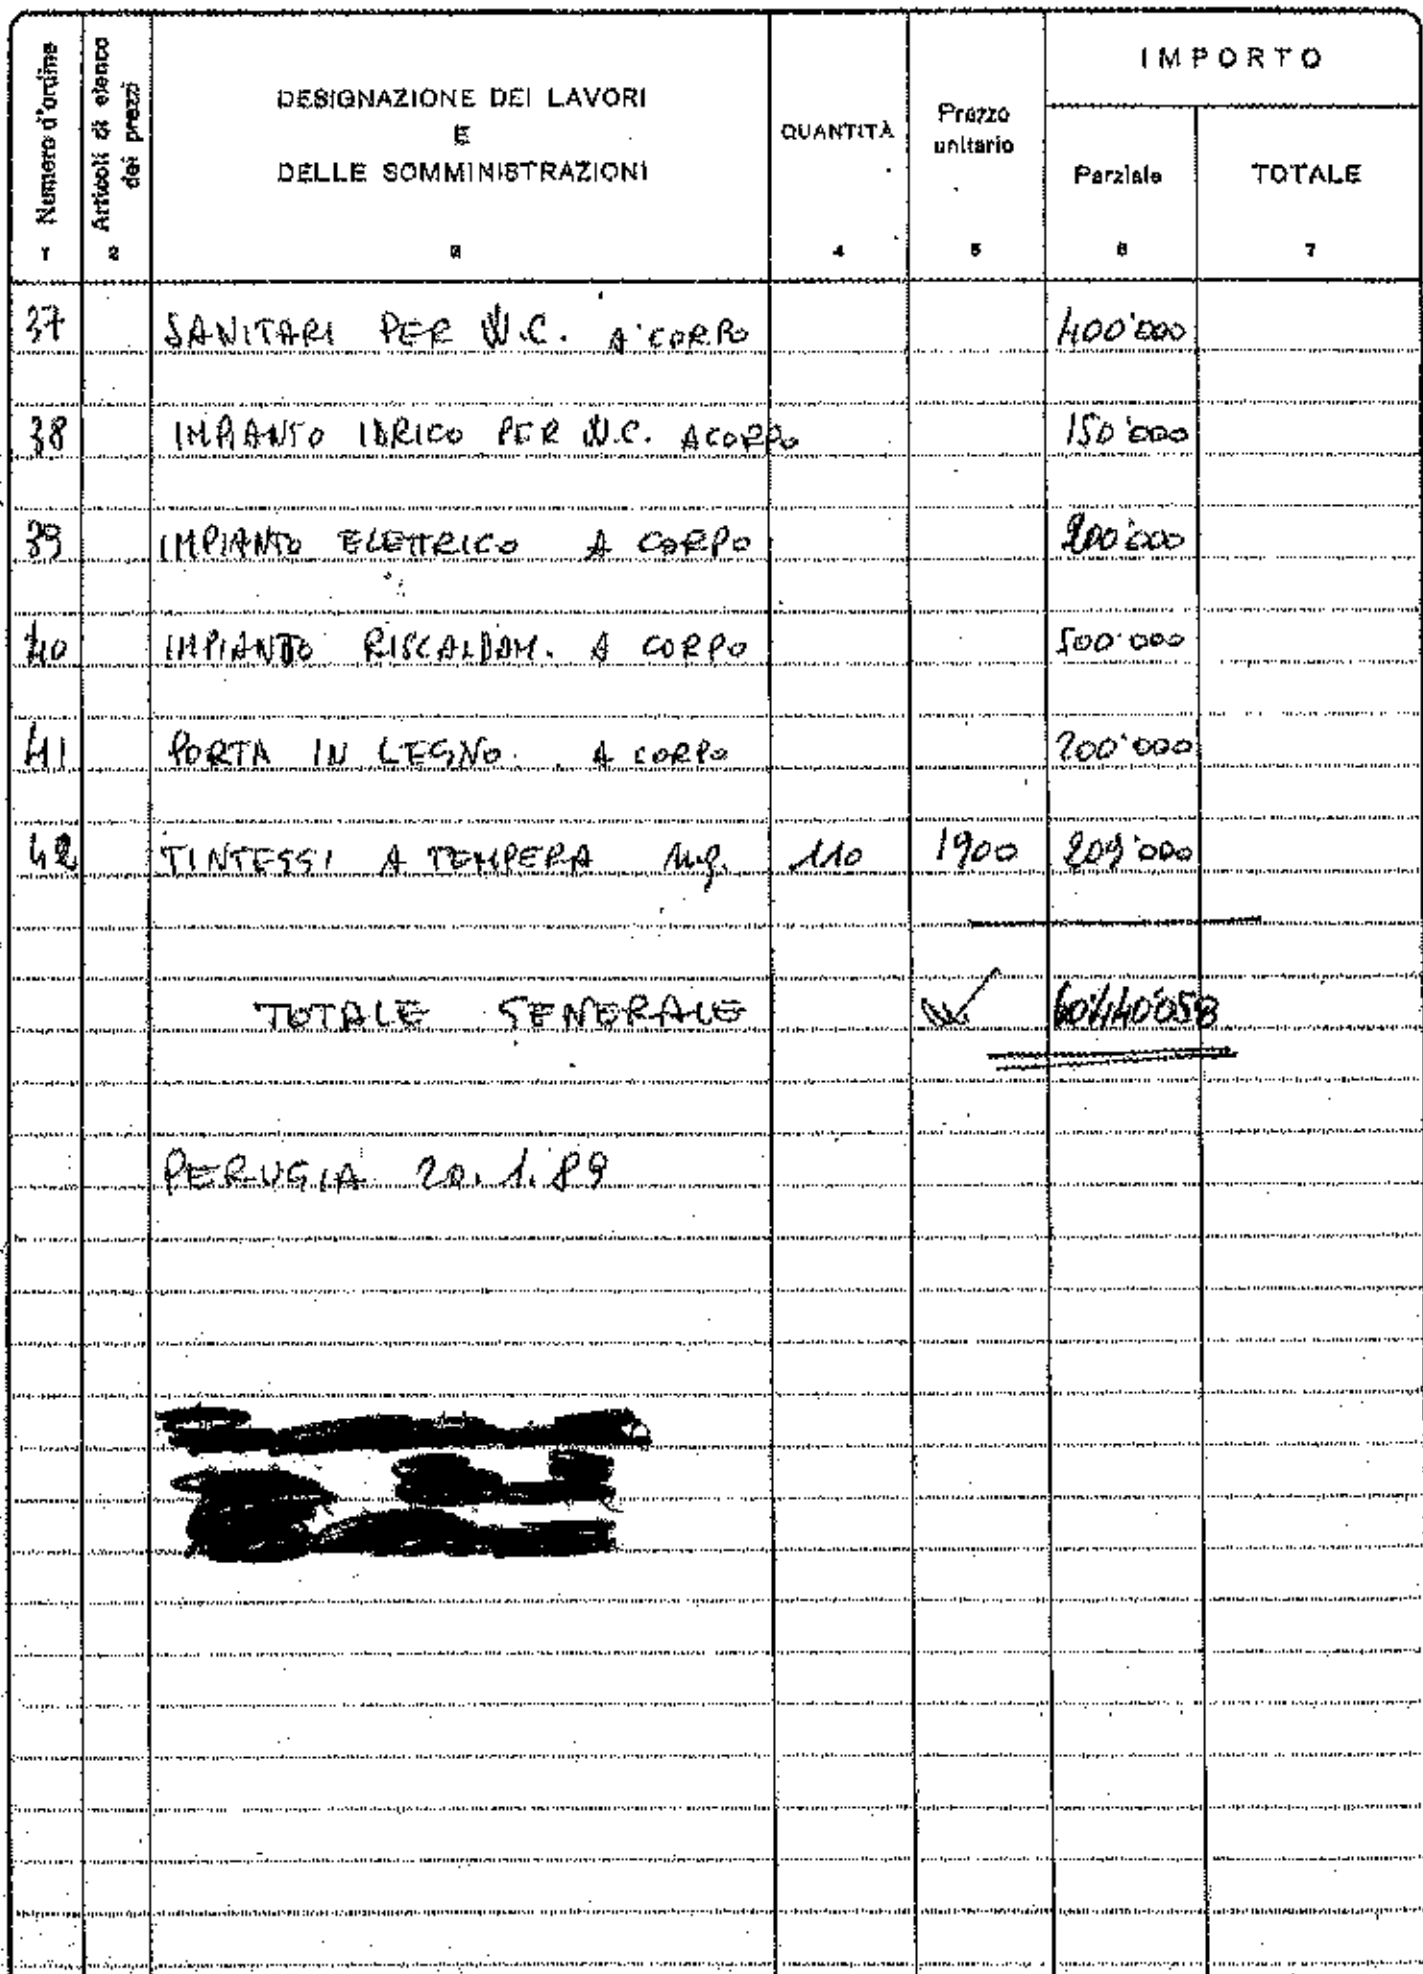 Numero d'ordine
1
Articoli di elenco dei prezzi
2
DESIGNAZIONE DEI LAVORI
E
DELLE SOMMINISTRAZIONI
3
QUANTITÀ
4
Prezzo unitario
5
IMPORTO
Parziale
6
TOTALE
7
37 SANITARI PER W.C. A CORPO 400'000
38 IMPIANTO IDRICO PER W.C. A CORPO 150'000
39 IMPIANTO ELETTRICO A CORPO 200'000
40 IMPIANTO RISCALDAM. A CORPO 500'000
41 PORTA IN LEGNO A CORPO 200'000
42 TINTEGGI A TEMPERA mq. 110 1900 209'000
TOTALE GENERALE
PERUGIA 20.1.89